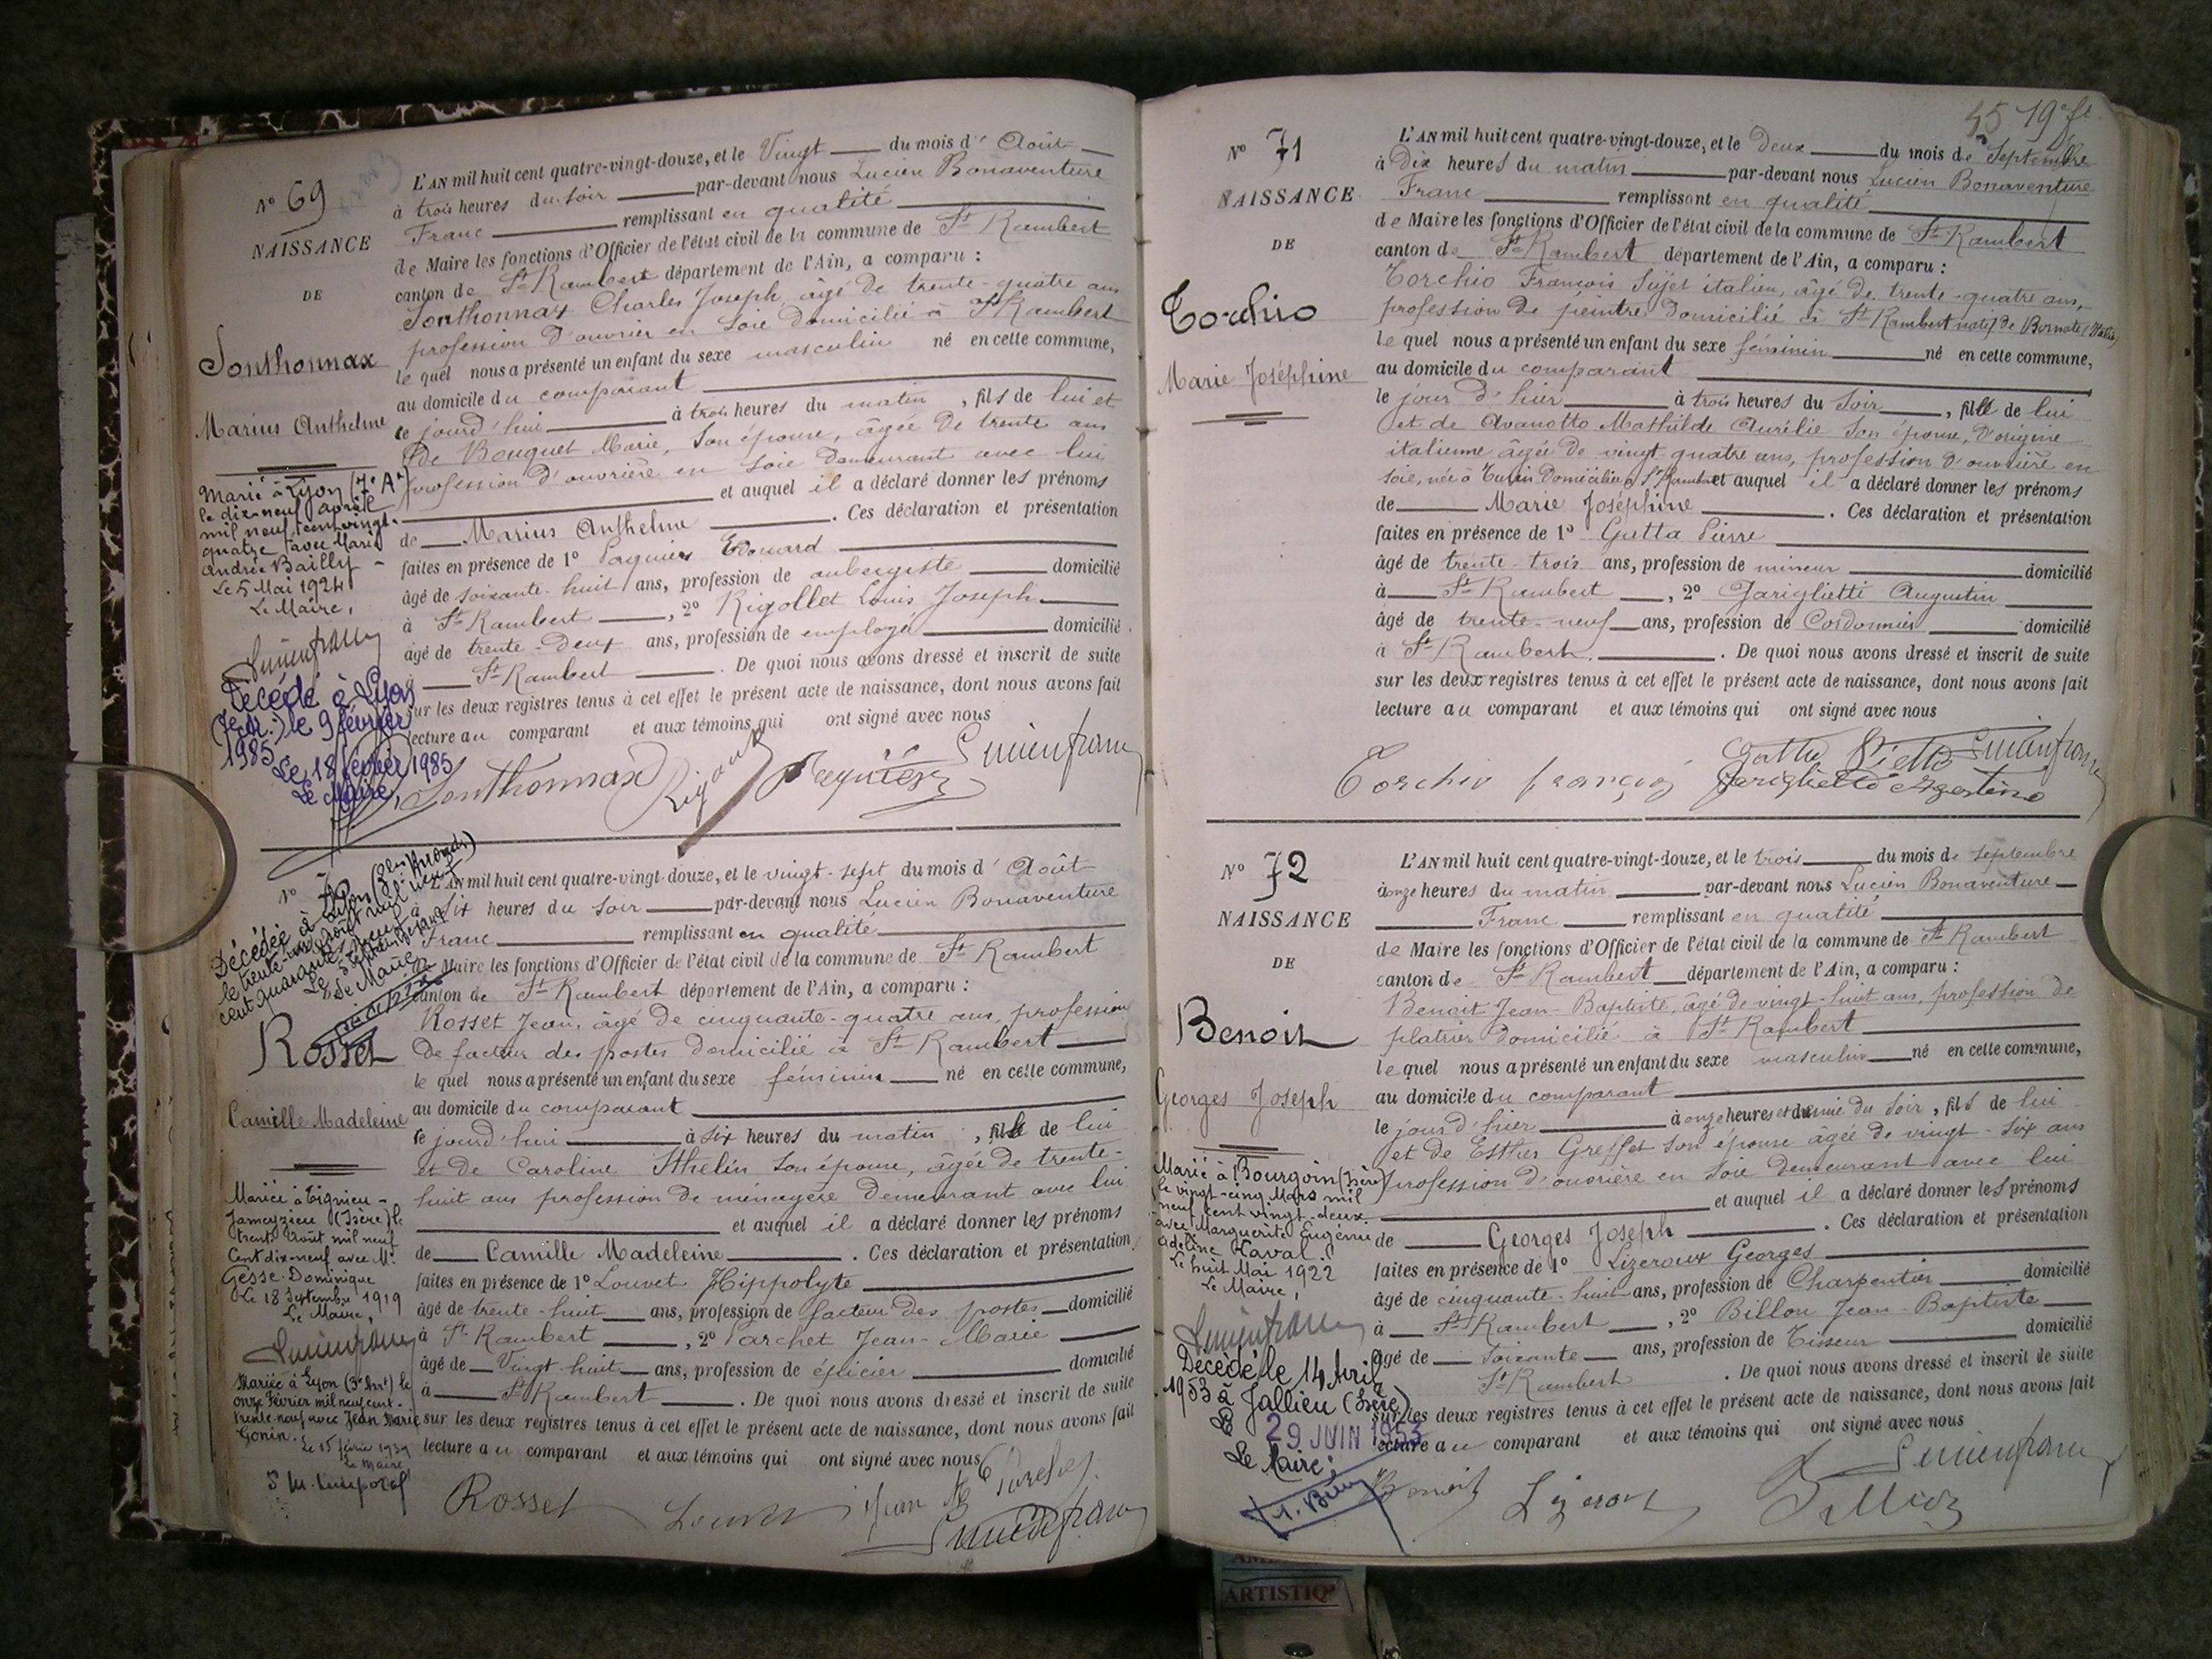 N° 69
NAISSANCE
DE
Sonthonnax
Marius Anthelme
Marié à Lyon (7e Ar)
le dix-neuf avril
mil neuf cent vingt-
quatre avec Marie
Andrée Bailly -
Le 5 Mai 1924
Le Maire,
Lucien franc
Décédé à Lyon
le 9 février
1985
Le 18 février 1985
Le Maire,
L'AN mil huit cent quatre-vingt-douze, et le Vingt du mois d' Août
à trois heures du soir par-devant nous Lucien Bonaventure
Franc remplissant en qualité
de Maire les fonctions d'Officier de l'état civil de la commune de St Rambert
canton de St Rambert département de l'Ain, a comparu :
Sonthonnax Charles Joseph, âgé de trente-quatre ans
profession d'ouvrier en soie domicilié à St Rambert
le quel nous a présenté un enfant du sexe masculin né en cette commune,
au domicile du comparant
le jourd'hui à trois heures du matin, fils de lui et
de Bouquet Marie, son épouse, âgée de trente ans
profession d'ouvrière en soie demeurant avec lui
et auquel il a déclaré donner les prénoms
de Marius Anthelme. Ces déclaration et présentation
faites en présence de 1° Paquier Edouard
âgé de soixante-huit ans, profession de aubergiste domicilié
à St Rambert, 2° Rigollet Louis Joseph
âgé de trente-deux ans, profession de employé domicilié
à St Rambert. De quoi nous avons dressé et inscrit de suite
sur les deux registres tenus à cet effet le présent acte de naissance, dont nous avons fait
lecture au comparant et aux témoins qui ont signé avec nous
Sonthonnax Lucien franc
N° 70
NAISSANCE
Décédée à Lyon
le trente-un août mil neuf
cent quarante neuf
Le Maire
Rosset
Camille Madeleine
Mariée à Tignieu-
Jameyzieu (Isère) le
trente août mil neuf
cent dix-neuf avec Mr
Gesse Dominique
Le 18 Septembre 1919
Le Maire,
Lucien franc
Mariée à Lyon (3e Arrt) le
onze Février mil neuf cent-
trente-neuf avec Jean Marie
Gonin.
Le 15 février 1939
Le Maire
L'AN mil huit cent quatre-vingt-douze, et le vingt-sept du mois d' Août
à six heures du soir par-devant nous Lucien Bonaventure
Franc remplissant en qualité
de Maire les fonctions d'Officier de l'état civil de la commune de St Rambert
canton de St Rambert département de l'Ain, a comparu :
Rosset Jean, âgé de cinquante-quatre ans, profession
de facteur des postes domicilié à St Rambert
le quel nous a présenté un enfant du sexe féminin né en cette commune,
au domicile du comparant
le jourd'hui à six heures du matin, fille de lui
et de Caroline Sthelin son épouse, âgée de trente-
huit ans profession de ménagère demeurant avec lui
et auquel il a déclaré donner les prénoms
de Camille Madeleine. Ces déclaration et présentation
faites en présence de 1° Louvet Hippolyte
âgé de trente-huit ans, profession de facteur des postes domicilié
à St Rambert, 2° Parchet Jean-Marie
âgé de Vingt-huit ans, profession de épicier domicilié
à St Rambert. De quoi nous avons dressé et inscrit de suite
sur les deux registres tenus à cet effet le présent acte de naissance, dont nous avons fait
lecture au comparant et aux témoins qui ont signé avec nous
Rosset Louvet Lucien franc
45 19e ft
N° 71
NAISSANCE
DE
Torchio
Marie Joséphine
L'AN mil huit cent quatre-vingt-douze, et le Deux du mois de Septembre
à Dix heures du matin par-devant nous Lucien Bonaventure
Franc remplissant en qualité
de Maire les fonctions d'Officier de l'état civil de la commune de St Rambert
canton de St Rambert département de l'Ain, a comparu :
Torchio François Sujet italien, âgé de trente-quatre ans,
profession de peintre domicilié à St Rambert natif de
le quel nous a présenté un enfant du sexe féminin né en cette commune,
au domicile du comparant
le jour d'hier à trois heures du soir, fille de lui
et de Avanotto Mathilde Aurélie son épouse, d'origine
italienne âgée de vingt quatre ans, profession d'ouvrière en
soie, née à Turin domiciliée à St Rambert et auquel il a déclaré donner les prénoms
de Marie Joséphine. Ces déclaration et présentation
faites en présence de 1° Gatta Pierre
âgé de trente-trois ans, profession de mineur domicilié
à St Rambert, 2° Gariglietti Augustin
âgé de trente-neuf ans, profession de Cordonnier domicilié
à St Rambert. De quoi nous avons dressé et inscrit de suite
sur les deux registres tenus à cet effet le présent acte de naissance, dont nous avons fait
lecture au comparant et aux témoins qui ont signé avec nous
Torchio françois Gatta Pietto Lucien franc
Gariglietto Agostino
N° 72
NAISSANCE
DE
Benoit
Georges Joseph
Marié à Bourgoin (Isère)
le vingt-cinq Mars mil
neuf cent vingt-deux
avec Marguerite Eugénie
Adeline Laval
Le huit Mai 1922
Le Maire,
Lucien franc
Décédé le 14 Avril
1953 à Jallieu (Isère)
Le 29 JUIN 1953
Le Maire:
L'AN mil huit cent quatre-vingt-douze, et le trois du mois de septembre
à onze heures du matin par-devant nous Lucien Bonaventure
Franc remplissant en qualité
de Maire les fonctions d'Officier de l'état civil de la commune de St Rambert
canton de St Rambert département de l'Ain, a comparu :
Benoit Jean-Baptiste, âgé de vingt-huit ans, profession de
platrier domicilié à St Rambert
le quel nous a présenté un enfant du sexe masculin né en cette commune,
au domicile du comparant
le jour d'hier à onze heures et demie du soir, fils de lui
et de Esther Greffet son épouse âgée de vingt-six ans
profession d'ouvrière en soie demeurant avec lui
et auquel il a déclaré donner les prénoms
de Georges Joseph. Ces déclaration et présentation
faites en présence de 1° Lizeroux Georges
âgé de cinquante-huit ans, profession de Charpentier domicilié
à St Rambert, 2° Billon Jean-Baptiste
âgé de soixante ans, profession de Tisseur domicilié
St Rambert. De quoi nous avons dressé et inscrit de suite
sur les deux registres tenus à cet effet le présent acte de naissance, dont nous avons fait
lecture au comparant et aux témoins qui ont signé avec nous
Benoit Lizeroux Billion Lucien franc
ARTISTIQ